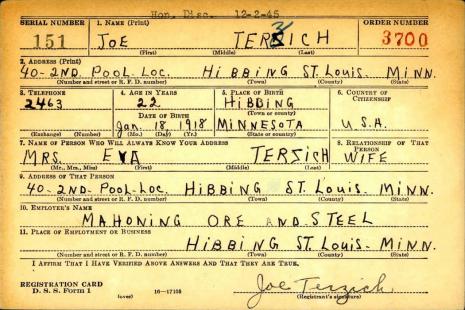 Hon. Disc. 12-2-45
SERIAL NUMBER 1. NAME (Print) ORDER NUMBER
151 JOE TERZICH 3700
(First) (Middle) (Last)
2. ADDRESS (Print)
40-2ND. POOL-LOC. HIBBING ST. LOUIS. MINN.
(Number and street or R. F. D. number) (Town) (County) (State)
3. TELEPHONE 4. AGE IN YEARS 5. PLACE OF BIRTH 6. COUNTRY OF CITIZENSHIP
2463 22 HIBBING
(Town or county)
DATE OF BIRTH
Jan. 18, 1918 MINNESOTA U.S.A.
(Exchange) (Number) (Mo.) (Day) (Yr.) (State or country)
7. NAME OF PERSON WHO WILL ALWAYS KNOW YOUR ADDRESS 8. RELATIONSHIP OF THAT PERSON
MRS. EVA TERZICH WIFE
(Mr., Mrs., Miss) (First) (Middle) (Last)
9. ADDRESS OF THAT PERSON
40-2ND-POOL-LOC. HIBBING ST. LOUIS- MINN.
(Number and street or R. F. D. number) (Town) (County) (State)
10. EMPLOYER'S NAME
MAHONING ORE AND STEEL
11. PLACE OF EMPLOYMENT OR BUSINESS
HIBBING ST. LOUIS- MINN.
(Number and street or R. F. D. number) (Town) (County) (State)
I AFFIRM THAT I HAVE VERIFIED ABOVE ANSWERS AND THAT THEY ARE TRUE.
REGISTRATION CARD
D. S. S. Form 1 (over) 16-17105
Joe Terzich
(Registrant's signature)